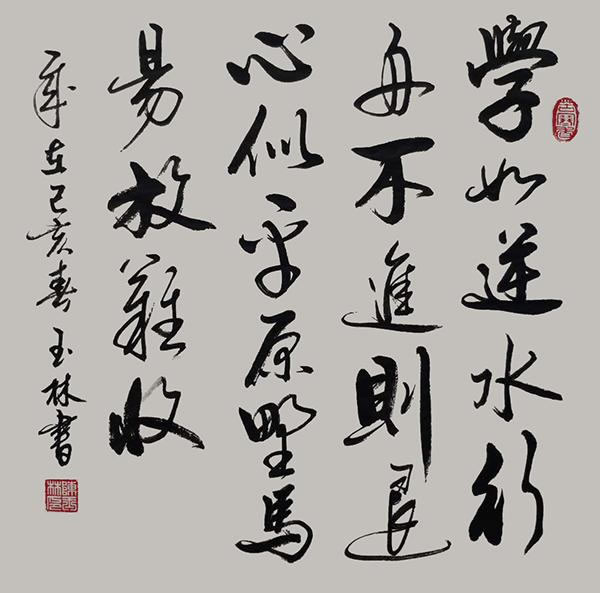 學如逆水行
舟不進則退
心似平原野馬
易放難收
歲在己亥春玉林書
陳玉林印